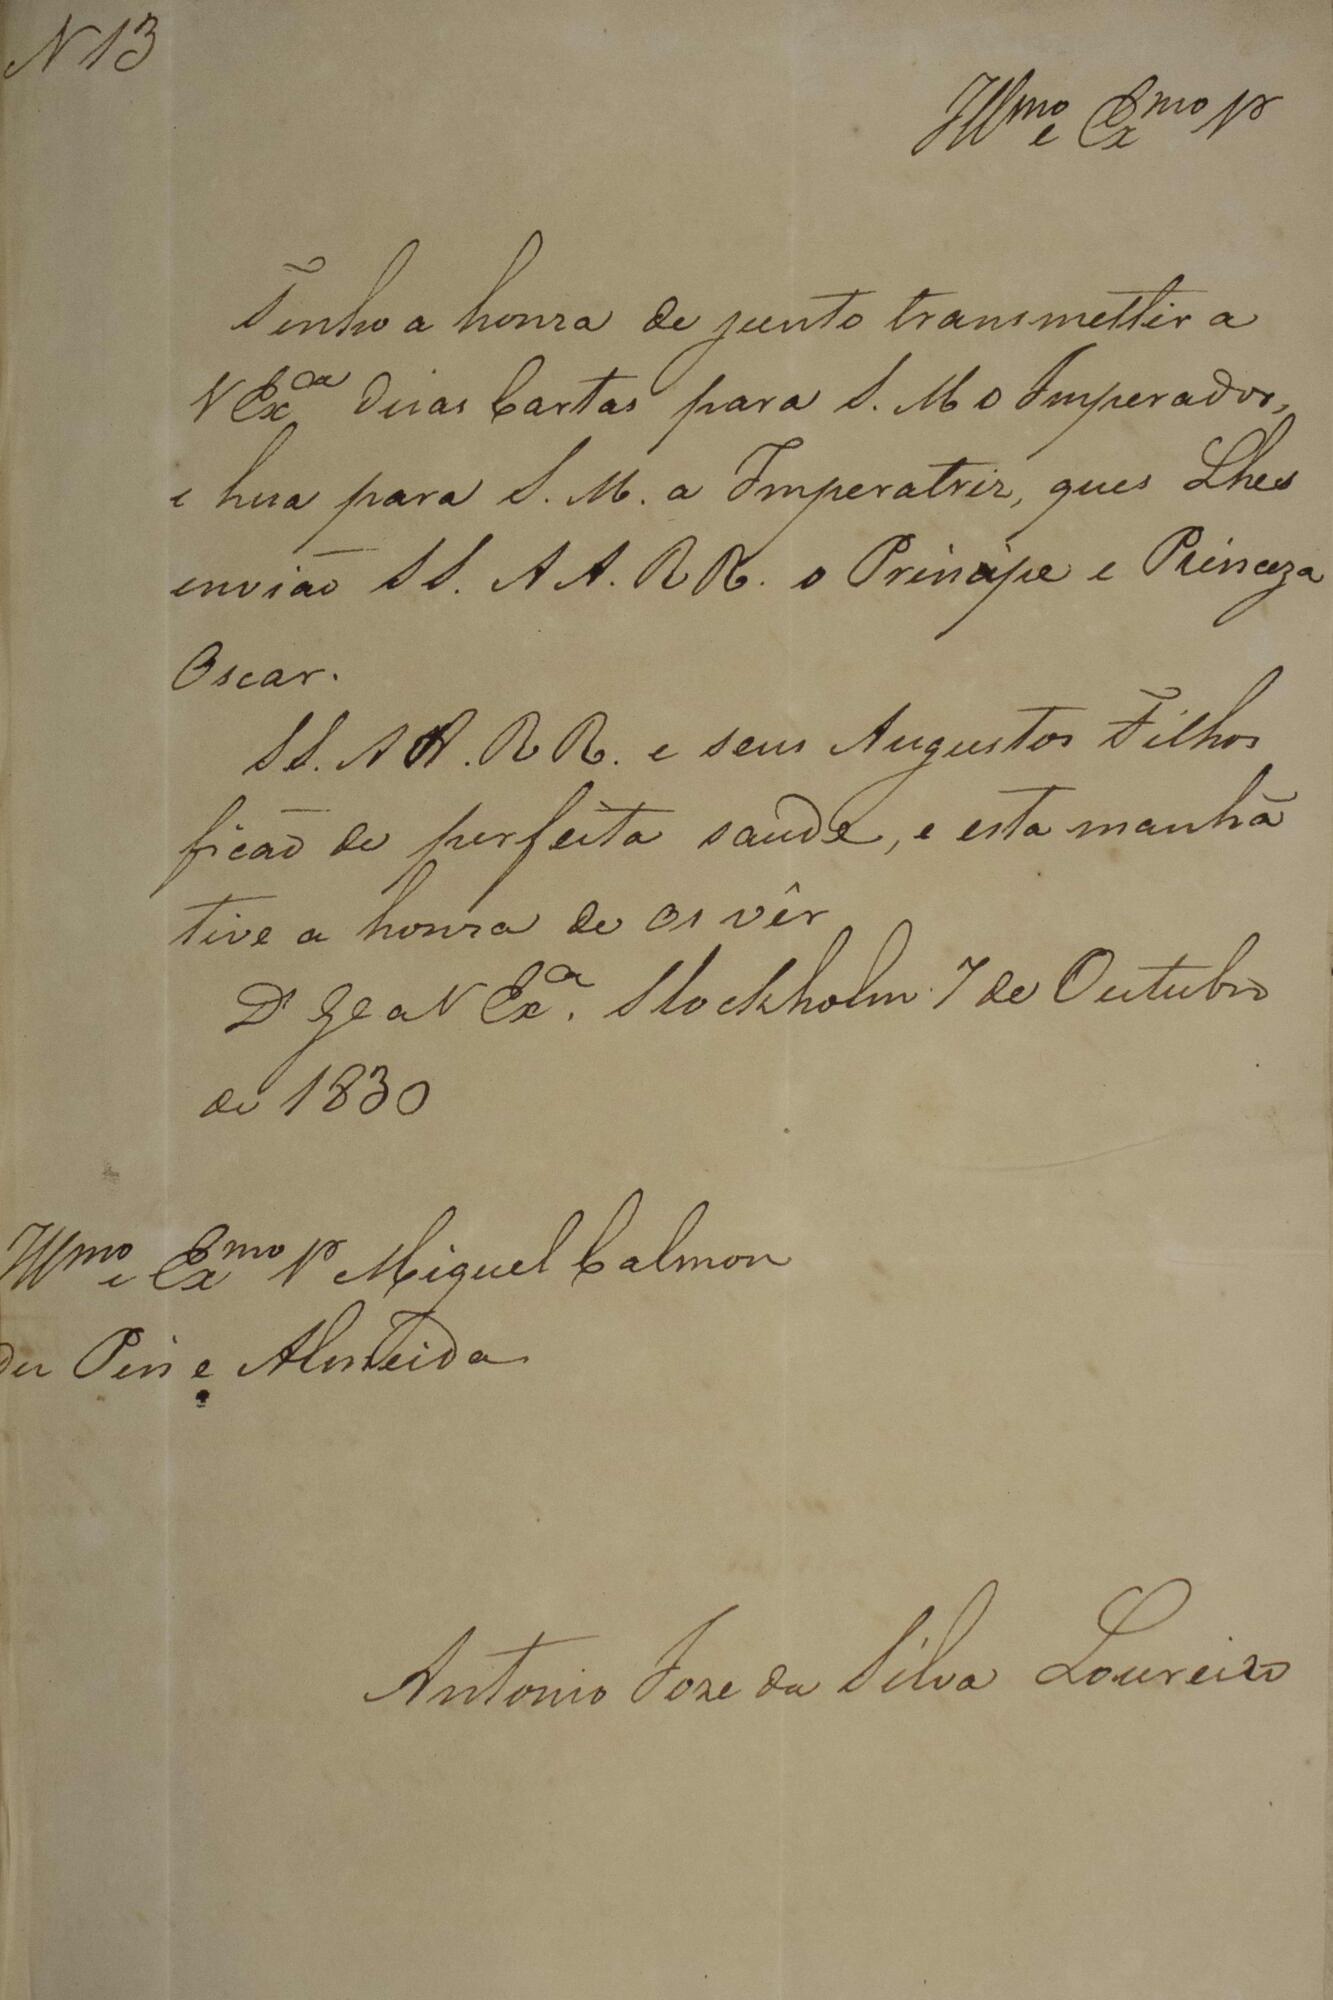 N 13
Illmo e Exmo Sr
Tenho a honra de junto transmettir a
V Exa duas Cartas para S. M. o Imperador,
e hua para S. M. a Imperatriz, ques Lhes
envião SS. AA. RR. o Principe e Princeza
Oscar.
SS. AA. RR. e seus Augustos Filhos
ficão de perfeita saude, e esta manhã
tive a honra de os vêr
Ds Ge a V Exa. Stockholm 7 de Outubro
de 1830
Illmo e Exmo Sr Miguel Calmon
du Pin e Almeida
Antonio Joze da Silva Loureiro